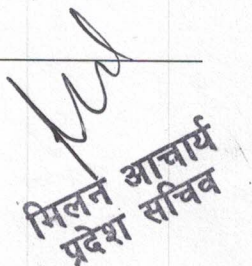 मिलन आचार्य
प्रदेश सचिव